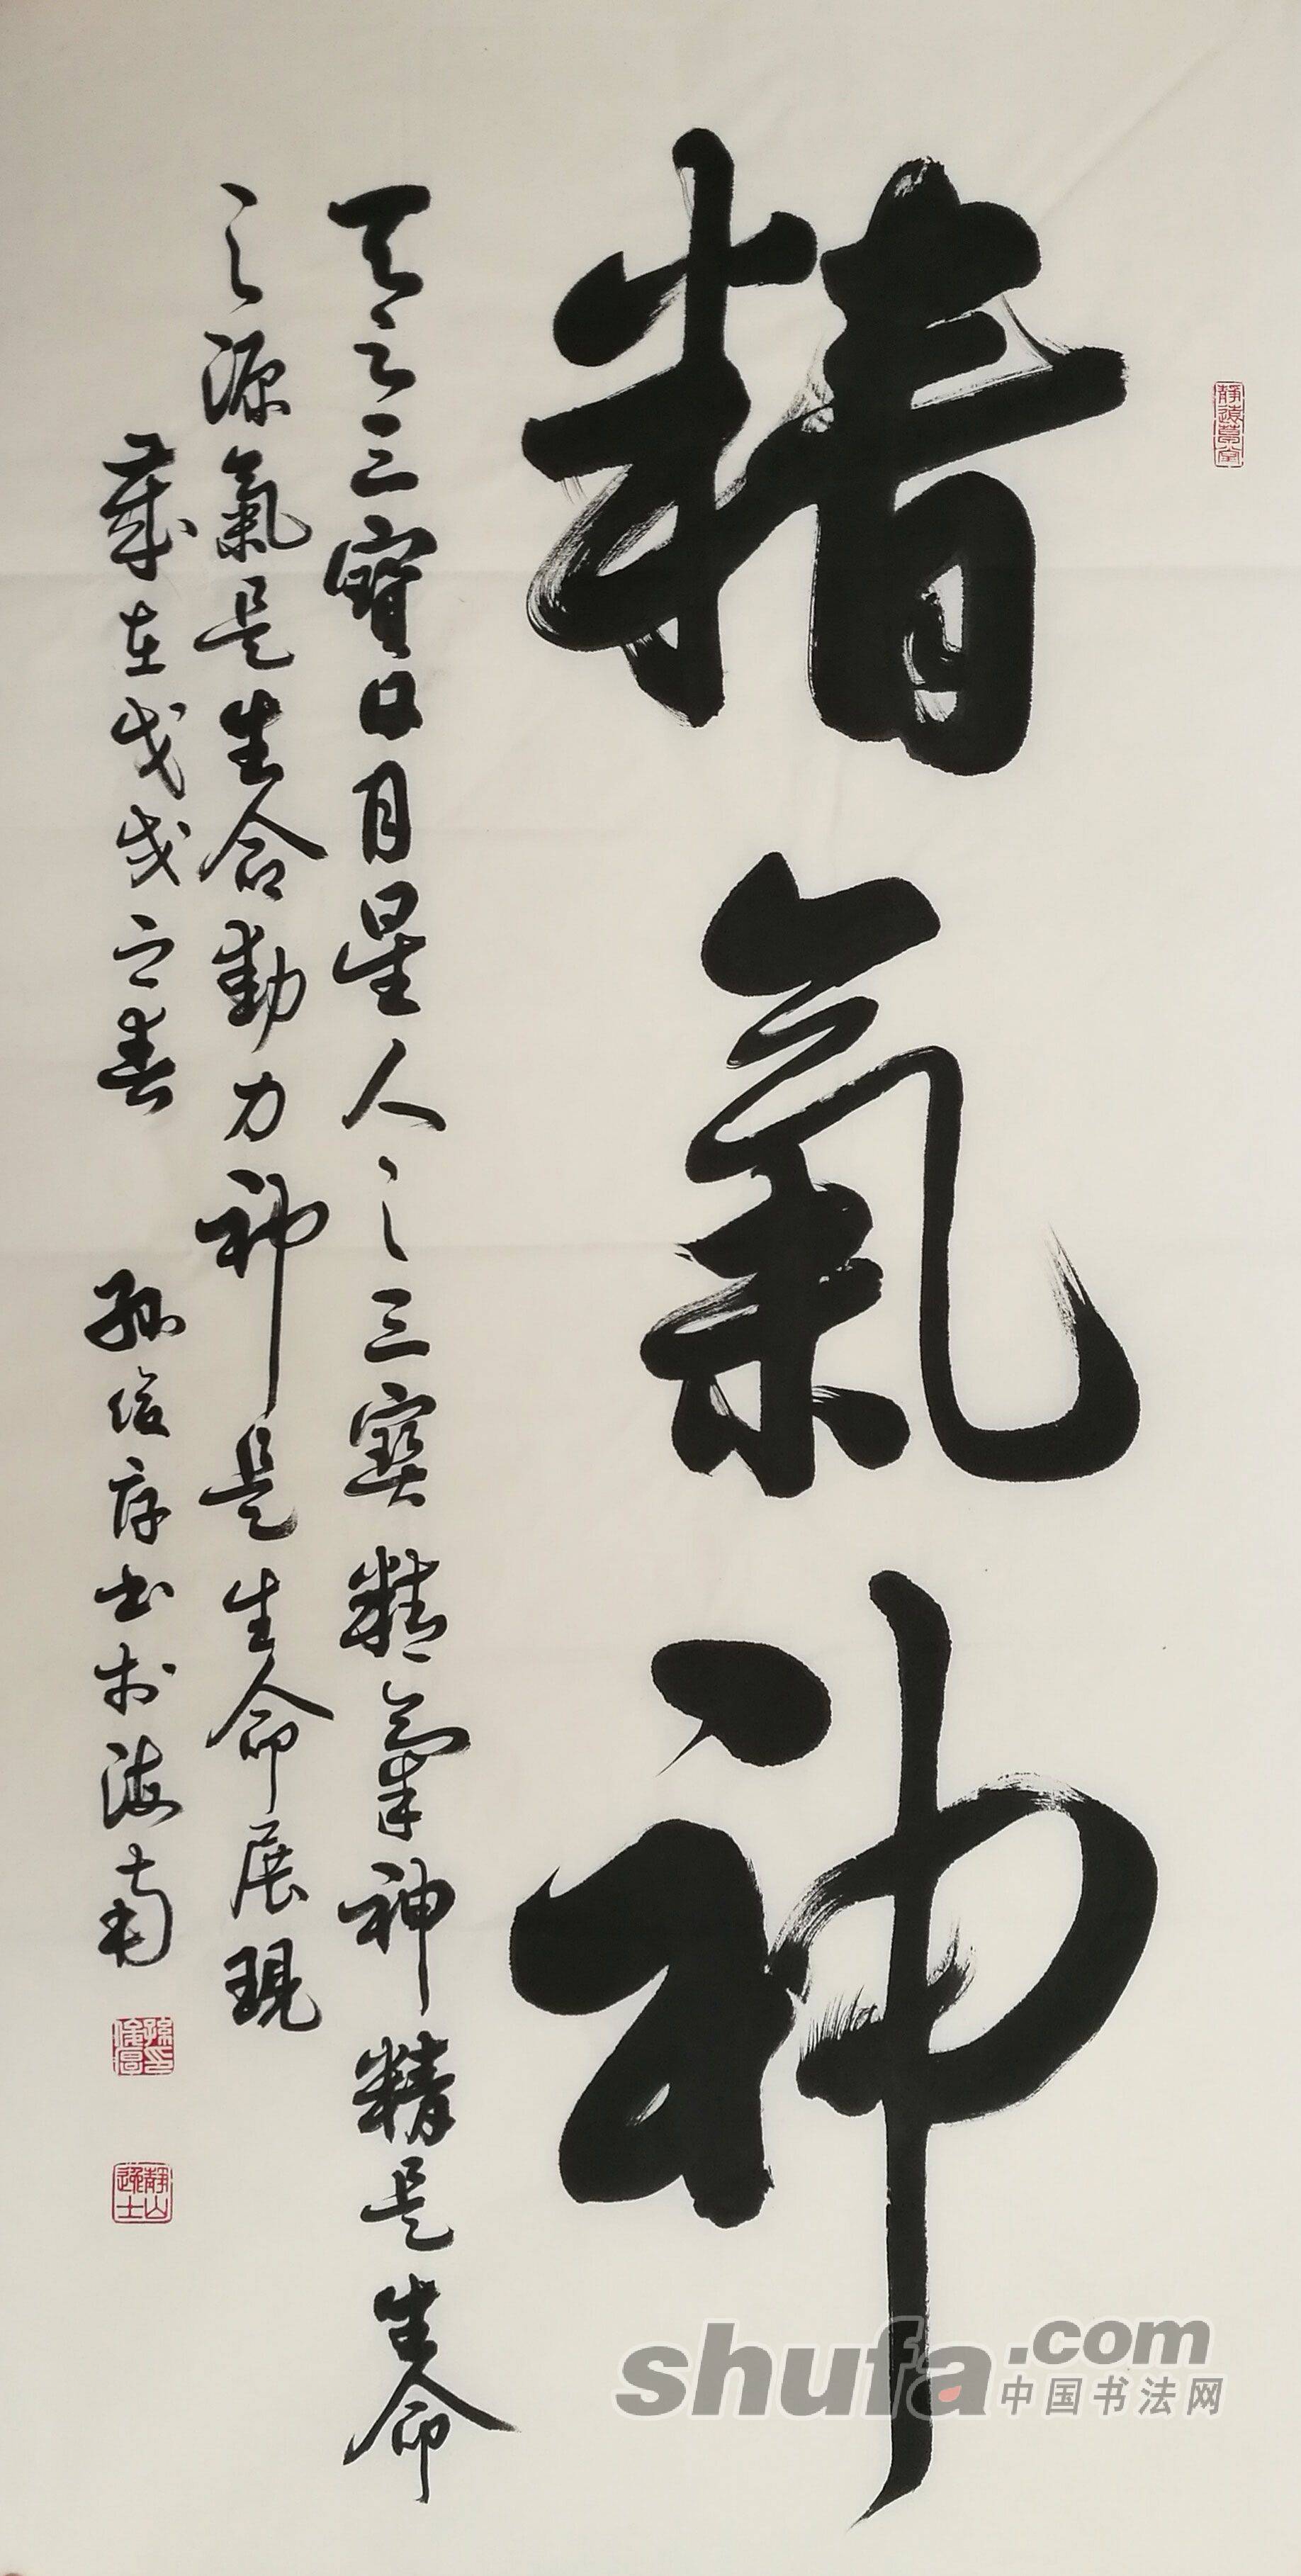 精氣神
天之三寶日月星人之三寶精氣神精是生命
之源氣是生命動力神是生命展現
歲在戊戌之春 孫俊序书于海南
靜山逸士
shufa.com
中国书法网